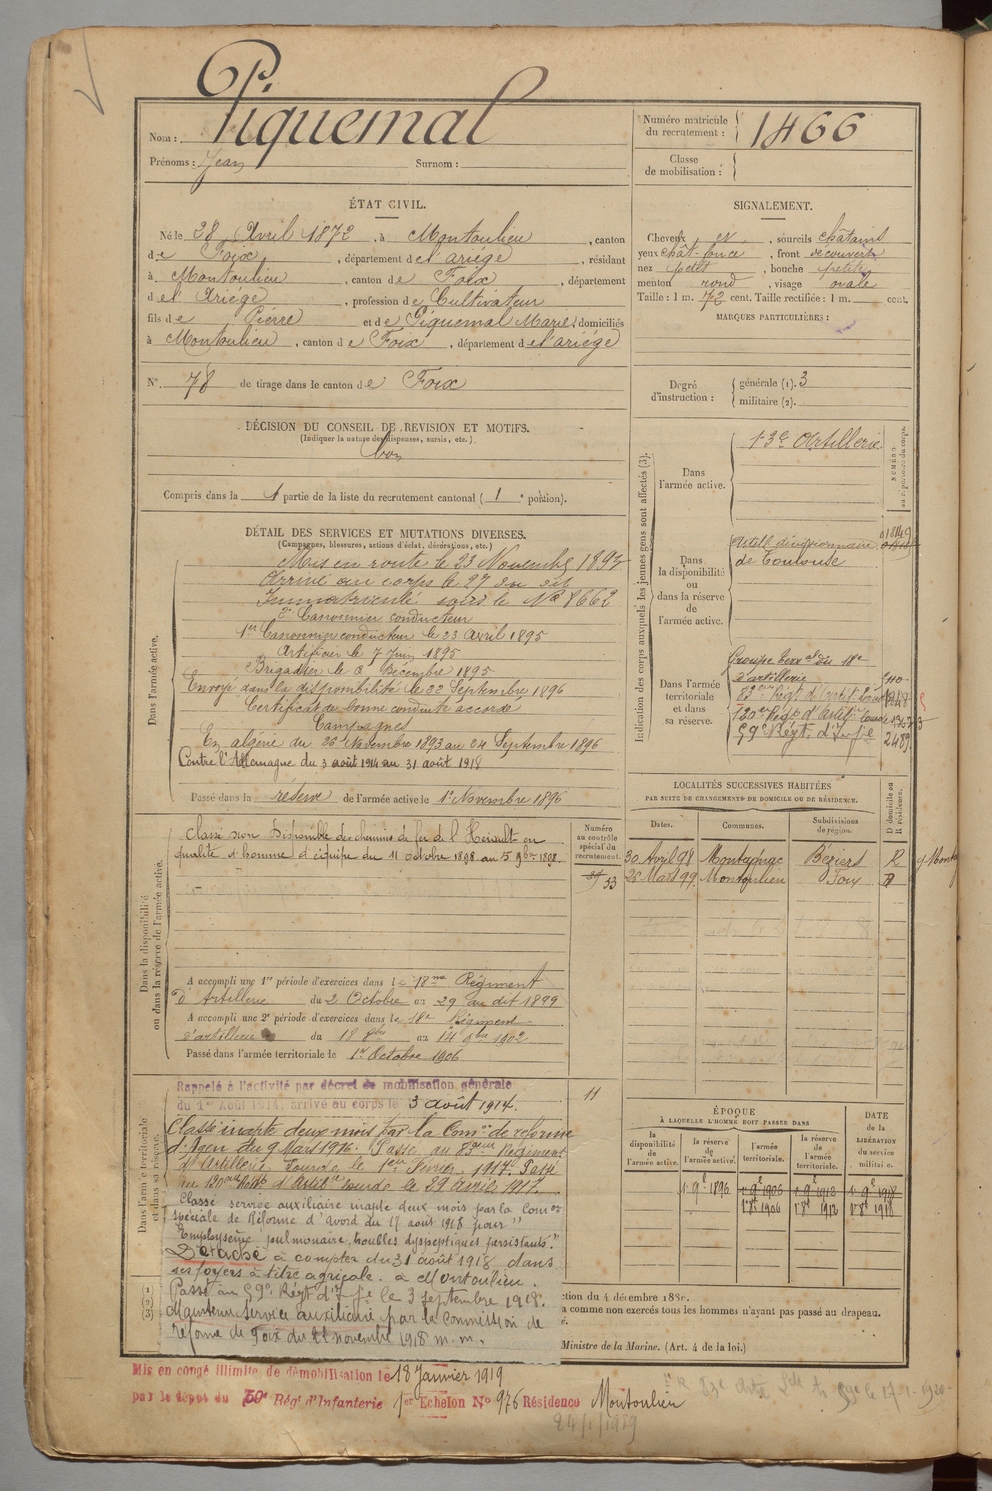 Nom : Piquemal
Prénoms : Jean Surnom :
Numéro matricule du recrutement : 1466
Classe de mobilisation :
ÉTAT CIVIL.
Né le 28 Avril 1872, à Montoulieu, canton
de Foix, département de l'ariège, résidant
à Montoulieu, canton de Foix, département
de l'Ariège, profession de Cultivateur
fils de Pierre et de Piquemal Marie, domiciliés
à Montoulieu, canton de Foix, département de l'ariège
N° 78 de tirage dans le canton de Foix
SIGNALEMENT.
Cheveux N, sourcils châtains
yeux chât-fonce, front découvert
nez petit, bouche petite
menton rond, visage ovale
Taille : 1 m. 72 cent. Taille rectifiée : 1 m. cent.
MARQUES PARTICULIÈRES :
Degré d'instruction : générale (1). 3
militaire (2).
DÉCISION DU CONSEIL DE REVISION ET MOTIFS.
(Indiquer la nature des dispenses, sursis, etc.)
bon
Compris dans la 1 partie de la liste du recrutement cantonal (1e portion).
DÉTAIL DES SERVICES ET MUTATIONS DIVERSES.
(Campagnes, blessures, actions d'éclat, décorations, etc.)
Dans l'armée active.
Mis en route le 23 Novembre 1893
Arrivé au corps le 27 du dit
Immatriculé sous le No 8662
2e Canonnier conducteur
1er Canonnier conducteur le 23 Avril 1895
Artificier le 7 Juin 1895
Brigadier le 8 Décembre 1895
Envoyé dans la disponibilité le 22 Septembre 1896
Certificat de bonne conduite accordé
Campagnes
En algérie du 26 Novembre 1893 au 24 Septembre 1896
Contre l'Allemagne du 3 août 1914 au 31 août 1918
Passé dans la réserve de l'armée active le 1er Novembre 1896
Indication des corps auxquels les jeunes gens sont affectés (3).
NUMÉRO au répertoire du corps.
Dans l'armée active.
13e Artillerie
Dans la disponibilité ou dans la réserve de l'armée active.
Artill divisionnaire
de Toulouse
Dans l'armée territoriale et dans sa réserve.
Groupe Terral du 18e
d'artillerie
83eme Régt d'Artil Lourde
120e Régt d'Artil lourde
59e Régt d'Infie 2489
Dans la disponibilité ou dans la réserve de l'armée active.
Classé non disponible des chemins de fer de l'Hérault en
qualité d'homme d'équipe du 11 octobre 1898 au 5 9bre 1898.
Numéro au contrôle spécial du recrutement.
53
A accompli une 1re période d'exercices dans le 18me Régiment
d'Artillerie du 2 Octobre au 29 du dit 1899
A accompli une 2e période d'exercices dans le 18e Régiment
d'artillerie du 18 8bre au 14 9bre 1902
Passé dans l'armée territoriale le 1er Octobre 1906
LOCALITÉS SUCCESSIVES HABITÉES
PAR SUITE DE CHANGEMENTS DE DOMICILE OU DE RÉSIDENCE.
Dates. Communes. Subdivisions de région. D domicile ou R résidence.
30 Avril 98 Béziers R
28 Mars 99 Montoulieu Foix
Dans l'armée territoriale et dans sa réserve.
Rappelé à l'activité par décret de mobilisation générale
du 1er Août 1914, arrivé au corps le 3 août 1914.
11
Classé inapte deux mois par la Comon de réforme
d'Agen du 9 Mars 1916. Passé au 83eme Régiment
d'Artillerie Lourde le 1er Février 1917. Passé
au 120eme Régt d'Artie lourde le 29 Avril 1917.
Classé service auxiliaire inapte deux mois par la Comon
spéciale de Réforme d'Avord du 17 août 1918 pour "
Emphysème pulmonaire, troubles dyspeptiques persistants."
Détaché à compter du 31 août 1918 dans
ses foyers à titre agricole. à Montoulieu.
Passé au 59e Régt d'Infie le 3 septembre 1918.
Maintenu Service auxiliaire par la Commission de
réforme de Foix du 22 novembre 1918 m.m.
ÉPOQUE
À LAQUELLE L'HOMME DOIT PASSER DANS
la disponibilité de l'armée active. la réserve de l'armée active. l'armée territoriale. la réserve de l'armée territoriale.
DATE de la LIBÉRATION du service militaire.
1 9e 1896 1 9e 1906 1 9e 1912 1 9e 1918
1er 8e 1906 1er 8e 1912 1er 8e 1918
(1)
(2)
(3)
ction du 4 décembre 188
a comme non exercés tous les hommes n'ayant pas passé au drapeau.
Ministre de la Marine. (Art. 4 de la loi.)
Mis en congé illimité de démobilisation le 18 Janvier 1919
par le dépôt du 59e Régt d'Infanterie 1er Echelon No 976 Résidence Montoulieu